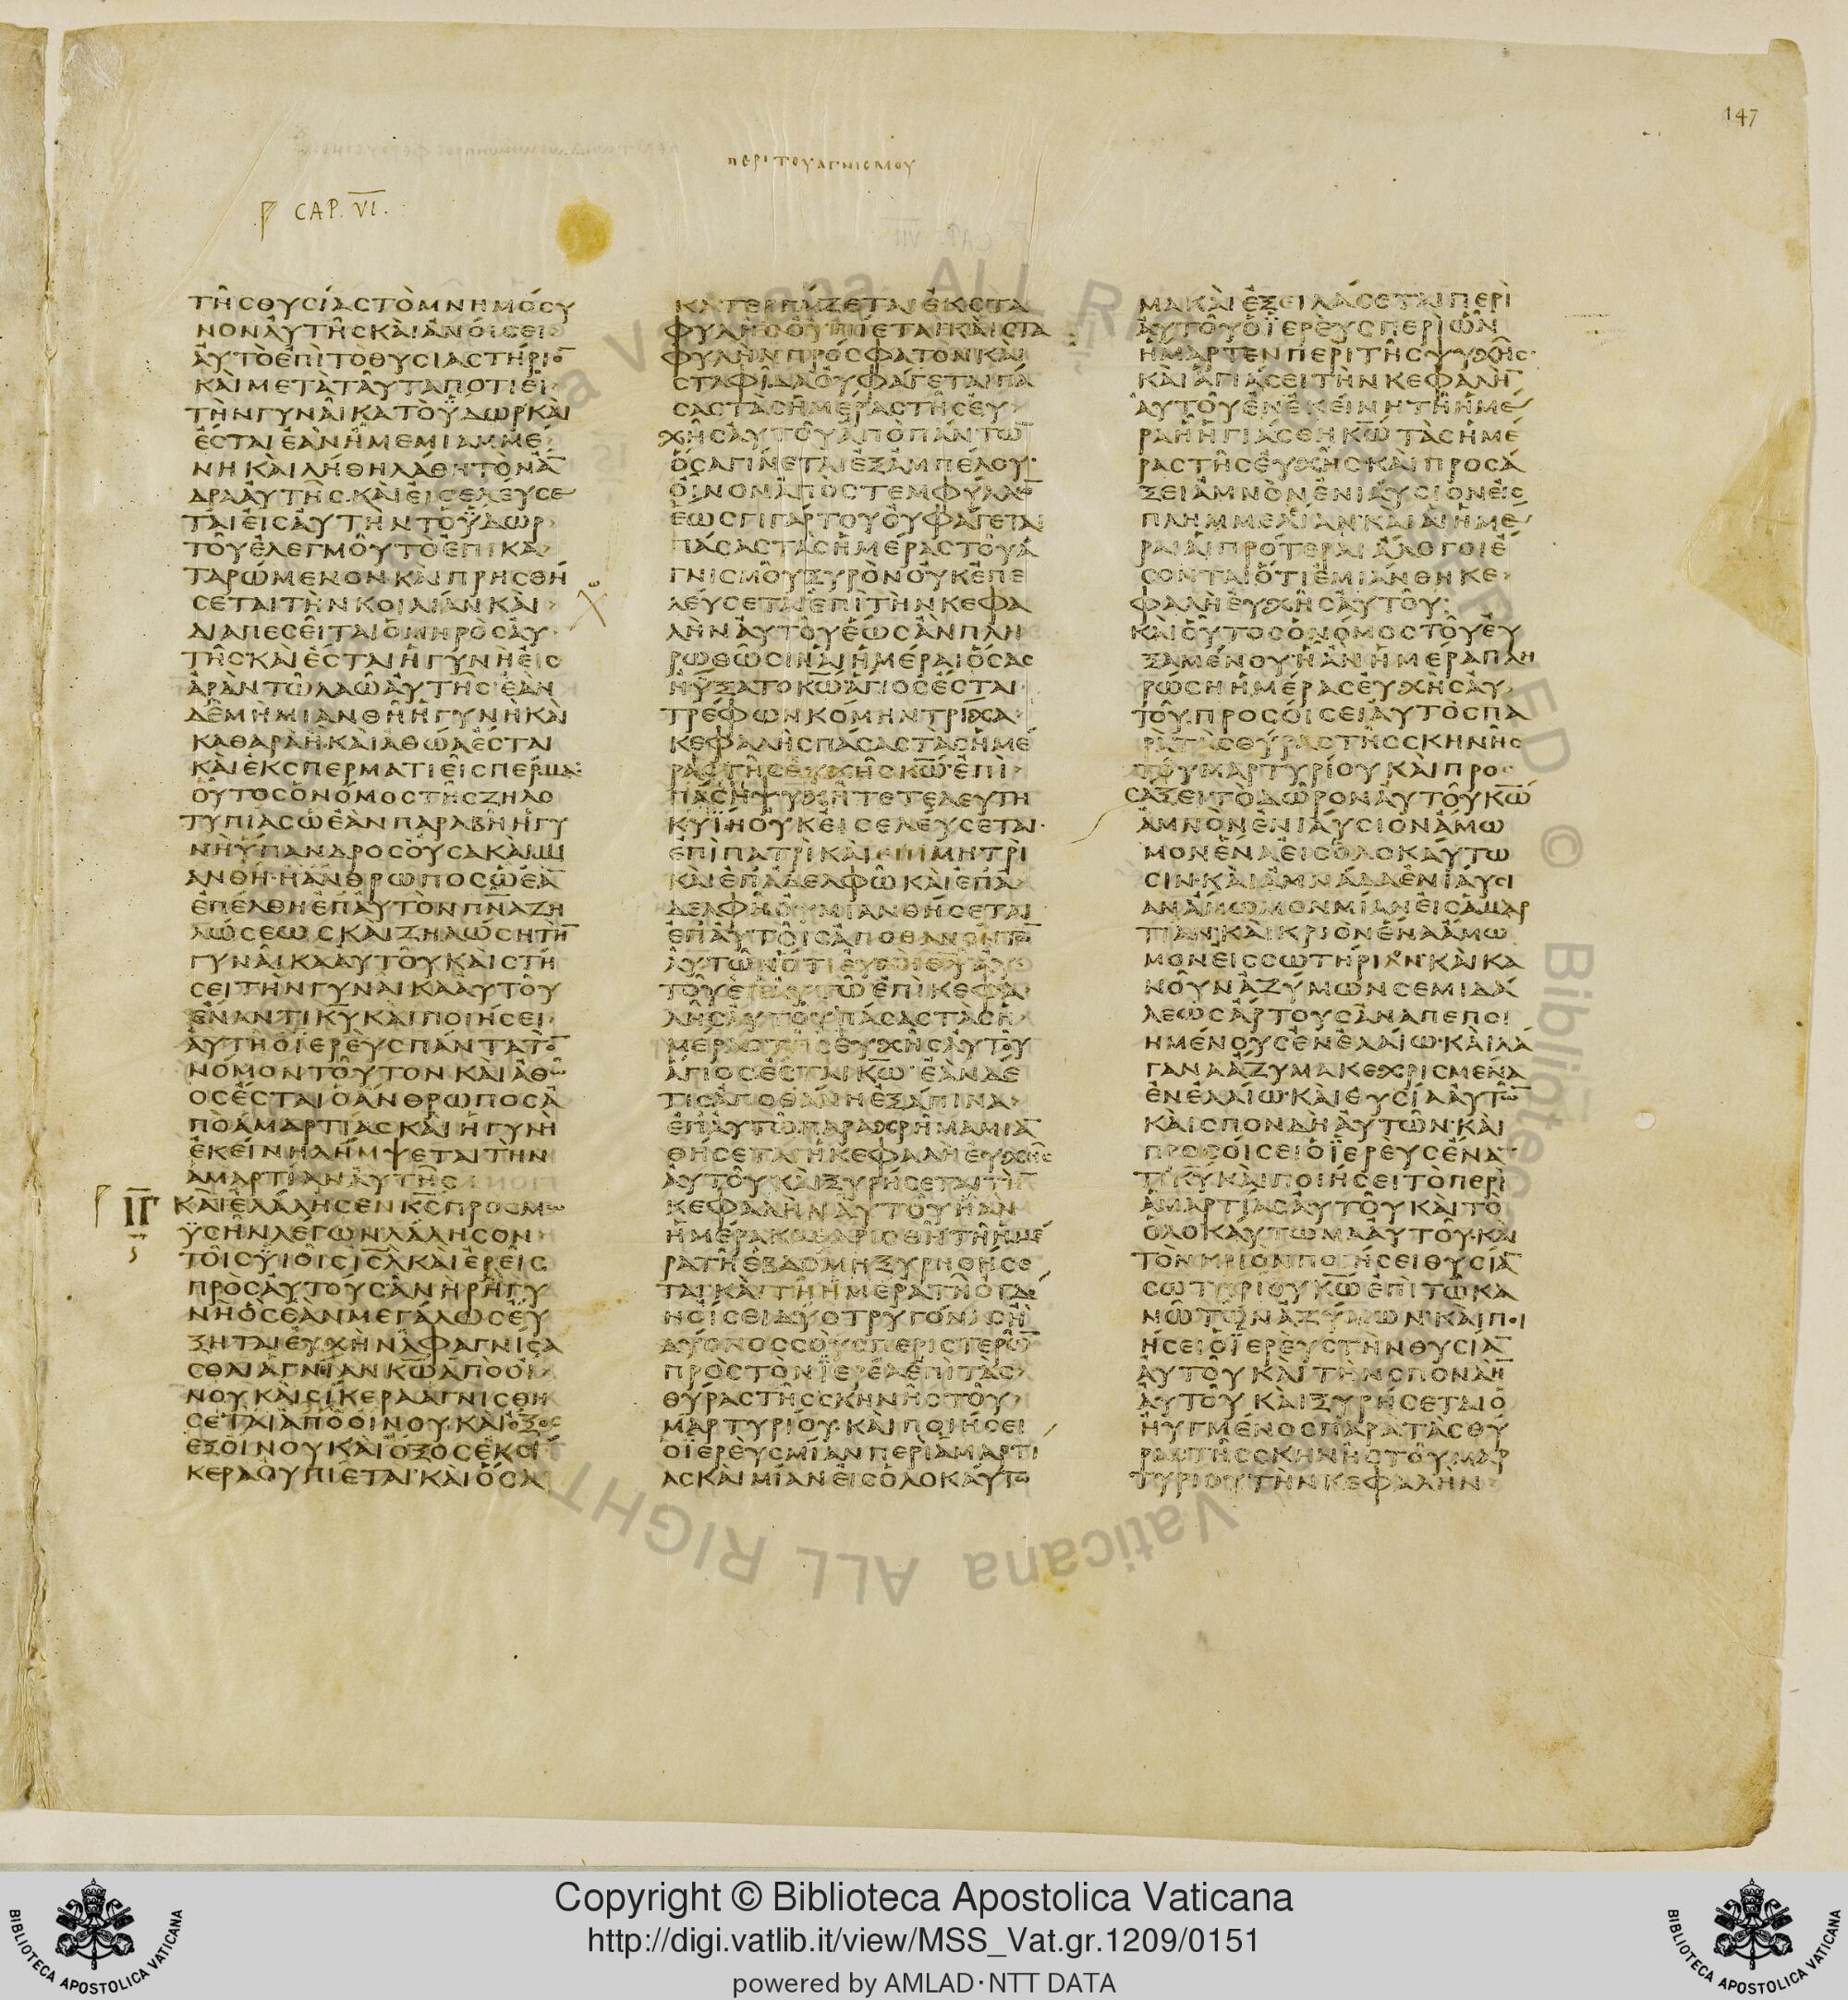 147
ΠΕΡΙ ΤΟΥ ΑΓΝΙΣΜΟΥ
CAP. VI.
ΤΗϹΘΥϹΙΑϹΤΟΜΝΗΜΟϹΥ
ΝΟΝΑΥΤΗϹΚΑΙΑΝΟΙϹΕΙ
ΑΥΤΟΕΠΙΤΟΘΥϹΙΑϹΤΗΡΙΟ̅
ΚΑΙΜΕΤΑΤΑΥΤΑΠΟΤΙΕΙ
ΤΗΝΓΥΝΑΙΚΑΤΟΫΔΩΡΚΑΙ
ΕϹΤΑΙΕΑΝΗΜΕΜΙΑΜΜΕ
ΝΗΚΑΙΛΗΘΗΛΑΘΗΤΟΝΑ̅
ΔΡΑΑΥΤΗϹ·ΚΑΙΕΙϹΕΛΕΥϹΕ
ΤΑΙΕΙϹΑΥΤΗΝΤΟΫΔΩΡ
ΤΟΥΕΛΕΓΜΟΥΤΟΕΠΙΚΑ
ΤΑΡΩΜΕΝΟΝΚΑΙΠΡΗϹΘΗ
ϹΕΤΑΙΤΗΝΚΟΙΛΙΑΝΚΑΙ
ΔΙΑΠΕϹΕΙΤΑΙΟΜΗΡΟϹΑΥ
ΤΗϹ·ΚΑΙΕϹΤΑΙΗΓΥΝΗΕΙϹ
ΑΡΑΝΤΩΛΑΩΑΥΤΗϹ·ΕΑΝ
ΔΕΜΗΜΙΑΝΘΗΗΓΥΝΗΚΑΙ
ΚΑΘΑΡΑΗΚΑΙΑΘΩΑΕϹΤΑΙ
ΚΑΙΕΚϹΠΕΡΜΑΤΙΕΙϹΠΕΡΜΑ·
ΟΥΤΟϹΟΝΟΜΟϹΤΗϹΖΗΛΟ
ΤΥΠΙΑϹΩΕΑΝΠΑΡΑΒΗΗΓΥ
ΝΗΫΠΑΝΔΡΟϹΟΥϹΑΚΑΙΜΙ
ΑΝΘΗ·ΗΑΝΘΡΩΠΟϹΩΕΑ̅
ΕΠΕΛΘΗΕΠΑΥΤΟΝΠΝ̅ΑΖΗ
ΛΩϹΕΩϹΚΑΙΖΗΛΩϹΗΤΗ̅
ΓΥΝΑΙΚΑΑΥΤΟΥΚΑΙϹΤΗ
ϹΕΙΤΗΝΓΥΝΑΙΚΑΑΥΤΟΥ
ΕΝΑΝΤΙΚ̅ΥΚΑΙΠΟΙΗϹΕΙ
ΑΥΤΗΟΪΕΡΕΥϹΠΑΝΤΑΤΟ̅
ΝΟΜΟΝΤΟΥΤΟΝΚΑΙΑΘΩ
ΟϹΕϹΤΑΙΟΑΝΘΡΩΠΟϹΑ
ΠΟΑΜΑΡΤΙΑϹΚΑΙΗΓΥΝΗ
ΕΚΕΙΝΗΛΗΜΨΕΤΑΙΤΗΝ
ΑΜΑΡΤΙΑΝΑΥΤΗϹ
ΙΓ̅
Ϛ̅
ΚΑΙΕΛΑΛΗϹΕΝΚ̅ϹΠΡΟϹΜΩ
ΫϹΗΝΛΕΓΩΝΛΑΛΗϹΟΝ
ΤΟΙϹΫΙΟΙϹΙϹ̅ΛΚΑΙΕΡΕΙϹ
ΠΡΟϹΑΥΤΟΥϹΑΝΗΡΗΓΥ
ΝΗΟϹΕΑΝΜΕΓΑΛΩϹΕΥ
ΞΗΤΑΙΕΥΧΗΝΑΦΑΓΝΙϹΑ
ϹΘΑΙΑΓΝΙΑΝΚ̅ΩΑΠΟΟΙ
ΝΟΥΚΑΙϹΙΚΕΡΑΑΓΝΙϹΘΗ
ϹΕΤΑΙΑΠΟΟΙΝΟΥ·ΚΑΙΟΞΟϹ
ΕΞΟΙΝΟΥΚΑΙΟΞΟϹΕΚϹΙ
ΚΕΡΑΟΥΠΙΕΤΑΙ·ΚΑΙΟϹΑ
ΚΑΤΕΡΓΑΖΕΤΑΙΕΚϹΤΑ
ΦΥΛΗϹΟΥΠΙΕΤΑΙ·ΚΑΙϹΤΑ
ΦΥΛΗΝΠΡΟϹΦΑΤΟΝΚΑΙ
ϹΤΑΦΙΔΑΟΥΦΑΓΕΤΑΙΠΑ
ϹΑϹΤΑϹΗΜΕΡΑϹΤΗϹΕΥ
ΧΗϹΑΥΤΟΥΑΠΟΠΑΝΤΩ̅
ΟϹΑΓΙΝΕΤΑΙΕΞΑΜΠΕΛΟΥ·
ΟΙΝΟΝΑΠΟϹΤΕΜΦΥΛΩ̅
ΕΩϹΓΙΓΑΡΤΟΥΟΥΦΑΓΕΤΑΙ
ΠΑϹΑϹΤΑϹΗΜΕΡΑϹΤΟΥΑ
ΓΝΙϹΜΟΥΞΥΡΟΝΟΥΚΕΠΕ
ΛΕΥϹΕΤΑΙΕΠΙΤΗΝΚΕΦΑ
ΛΗΝΑΥΤΟΥΕΩϹΑΝΠΛΗ
ΡΩΘΩϹΙΝΑΙΗΜΕΡΑΙΟϹΑϹ
ΗΥΞΑΤΟΚ̅ΩΑΓΙΟϹΕϹΤΑΙ
ΤΡΕΦΩΝΚΟΜΗΝΤΡΙΧΑ
ΚΕΦΑΛΗϹΠΑϹΑϹΤΑϹΗΜΕ
ΡΑϹΤΗϹΕΥΧΗϹΚ̅Ω·ΕΠΙ
ΠΑϹΗΨΥΧΗΤΕΤΕΛΕΥΤΗ
ΚΥΪΗΟΥΚΕΙϹΕΛΕΥϹΕΤΑΙ·
ΕΠΙΠΑΤΡΙΚΑΙΕΠΙΜΗΤΡΙ
ΚΑΙΕΠΑΔΕΛΦΩΚΑΙΕΠΑ
ΔΕΛΦΗΟΥΜΙΑΝΘΗϹΕΤΑΙ
ΕΠΑΥΤΟΙϹΑΠΟΘΑΝΟΝΤΩ̅
ΑΥΤΩΝΟΤΙΕΥΧΗΘ̅ΥΑΥ
ΤΟΥΕΠΑΥΤΩΕΠΙΚΕΦΑ
ΛΗϹΑΥΤΟΥΠΑϹΑϹΤΑϹΗ
ΜΕΡΑϹΤΗϹΕΥΧΗϹΑΥΤΟΥ
ΑΓΙΟϹΕϹΤΑΙΚ̅Ω·ΕΑΝΔΕ
ΤΙϹΑΠΟΘΑΝΗΕΞΑΠΙΝΑ
ΕΠΑΥΤΩΠΑΡΑΧΡΗΜΑΜΙΑ̅
ΘΗϹΕΤΑΙΗΚΕΦΑΛΗΕΥΧΗϹ
ΑΥΤΟΥΚΑΙΞΥΡΗϹΕΤΑΙΤΗ̅
ΚΕΦΑΛΗΝΑΥΤΟΥΗΑΝ
ΗΜΕΡΑΚΑΘΑΡΙϹΘΗΤΗΗΜΕ
ΡΑΤΗΕΒΔΟΜΗΞΥΡΗΘΗϹΕ
ΤΑΙ·ΚΑΙΤΗΗΜΕΡΑΤΗΟΓΔΟ
ΗΟΙϹΕΙΔΥΟΤΡΥΓΟΝΑϹΗ
ΔΥΟΝΟϹϹΟΥϹΠΕΡΙϹΤΕΡΩ̅
ΠΡΟϹΤΟΝΪΕΡΕΑΕΠΙΤΑϹ
ΘΥΡΑϹΤΗϹϹΚΗΝΗϹΤΟΥ
ΜΑΡΤΥΡΙΟΥ·ΚΑΙΠΟΙΗϹΕΙ
ΟΪΕΡΕΥϹΜΙΑΝΠΕΡΙΑΜΑΡΤΙ
ΑϹΚΑΙΜΙΑΝΕΙϹΟΛΟΚΑΥΤΩ
ΜΑΚΑΙΕΞΕΙΛΑϹΕΤΑΙΠΕΡΙ
ΑΥΤΟΥΟΪΕΡΕΥϹΠΕΡΙΩΝ
ΗΜΑΡΤΕΝΠΕΡΙΤΗϹΨΥΧΗϹ·
ΚΑΙΑΓΙΑϹΕΙΤΗΝΚΕΦΑΛΗ̅
ΑΥΤΟΥΕΝΕΚΕΙΝΗΤΗΗΜΕ
ΡΑΗΗΓΙΑϹΘΗΚ̅ΩΤΑϹΗΜΕ
ΡΑϹΤΗϹΕΥΧΗϹ·ΚΑΙΠΡΟϹΑ
ΞΕΙΑΜΝΟΝΕΝΙΑΥϹΙΟΝΕΙϹ
ΠΛΗΜΜΕΛΙΑΝ·ΚΑΙΑΙΗΜΕ
ΡΑΙΑΙΠΡΟΤΕΡΑΙΑΛΟΓΟΙΕ
ϹΟΝΤΑΙΟΤΙΕΜΙΑΝΘΗΚΕ
ΦΑΛΗΕΥΧΗϹΑΥΤΟΥ·
ΚΑΙΟΥΤΟϹΟΝΟΜΟϹΤΟΥΕΥ
ΞΑΜΕΝΟΥ·ΗΑΝΗΜΕΡΑΠΛΗ
ΡΩϹΗΗΜΕΡΑϹΕΥΧΗϹΑΥ
ΤΟΥ·ΠΡΟϹΟΙϹΕΙΑΥΤΟϹΠΑ
ΡΑΤΑϹΘΥΡΑϹΤΗϹϹΚΗΝΗϹ
ΤΟΥΜΑΡΤΥΡΙΟΥΚΑΙΠΡΟ
ϹΑΞΕΙΤΟΔΩΡΟΝΑΥΤΟΥΚ̅Ω
ΑΜΝΟΝΕΝΙΑΥϹΙΟΝΑΜΩ
ΜΟΝΕΝΑΕΙϹΟΛΟΚΑΥΤΩ
ϹΙΝ·ΚΑΙΑΜΝΑΔΑΕΝΙΑΥϹΙ
ΑΝΑΜΩΜΟΝΜΙΑΝΕΙϹΑΜΑΡ
ΤΙΑΝ·ΚΑΙΚΡΙΟΝΕΝΑΑΜΩ
ΜΟΝΕΙϹϹΩΤΗΡΙΑΝ·ΚΑΙΚΑ
ΝΟΥΝΑΖΥΜΩΝϹΕΜΙΔΑ
ΛΕΩϹΑΡΤΟΥϹΑΝΑΠΕΠΟΙ
ΗΜΕΝΟΥϹΕΝΕΛΑΙΩ·ΚΑΙΛΑ
ΓΑΝΑΑΖΥΜΑΚΕΧΡΙϹΜΕΝΑ
ΕΝΕΛΑΙΩ·ΚΑΙΘΥϹΙΑΑΥΤΩ̅
ΚΑΙϹΠΟΝΔΗΑΥΤΩΝ·ΚΑΙ
ΠΡΟϹΟΙϹΕΙΟΪΕΡΕΥϹΕΝΑ
ΤΙΚ̅ΥΚΑΙΠΟΙΗϹΕΙΤΟΠΕΡΙ
ΑΜΑΡΤΙΑϹΑΥΤΟΥΚΑΙΤΟ
ΟΛΟΚΑΥΤΩΜΑΑΥΤΟΥ·ΚΑΙ
ΤΟΝΚΡΙΟΝΠΟΙΗϹΕΙΘΥϹΙΑ̅
ϹΩΤΗΡΙΟΥΚ̅ΩΕΠΙΤΩΚΑ
ΝΩΤΩΝΑΖΥΜΩΝ·ΚΑΙΠΟΙ
ΗϹΕΙΟΪΕΡΕΥϹΤΗΝΘΥϹΙΑ̅
ΑΥΤΟΥΚΑΙΤΗΝϹΠΟΝΔΗ̅
ΑΥΤΟΥΚΑΙΞΥΡΗϹΕΤΑΙΟ
ΗΥΓΜΕΝΟϹΠΑΡΑΤΑϹΘΥ
ΡΑϹΤΗϹϹΚΗΝΗϹΤΟΥΜΑΡ
ΤΥΡΙΟΥΤΗΝΚΕΦΑΛΗΝ
Biblioteca Vaticana ALL RIGHT
Copyright © Biblioteca Apostolica Vaticana
http://digi.vatlib.it/view/MSS_Vat.gr.1209/0151
powered by AMLAD·NTT DATA
BIBLIOTECA APOSTOLICA VATICANA
BIBLIOTECA APOSTOLICA VATICANA